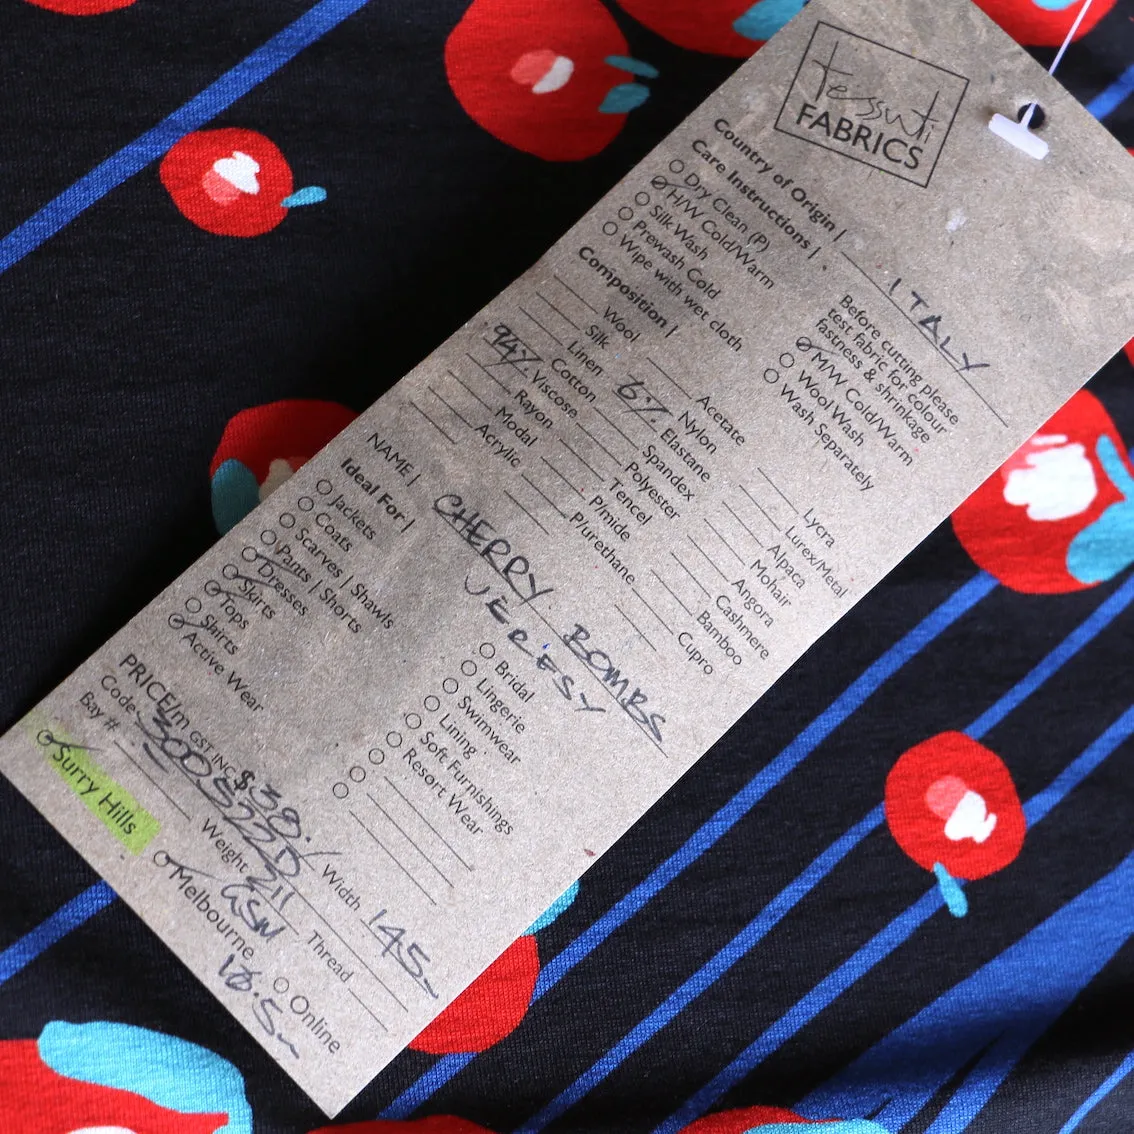 tessuti
FABRICS
Country of Origin | ITALY
Care Instructions |
Dry Clean (P)
H/W Cold/Warm
Silk Wash
Prewash Cold
Wipe with wet cloth
Before cutting please
test fabric for colour
fastness & shrinkage
M/W Cold/Warm
Wool Wash
Wash Separately
Composition |
Wool
Silk
Linen
Cotton
94% Viscose
Rayon
Modal
Acrylic
Acetate
Nylon
6% Elastane
Spandex
Polyester
Tencel
P/mide
P/urethane
Lycra
Lurex/Metal
Alpaca
Mohair
Angora
Cashmere
Bamboo
Cupro
NAME | CHERRY BOMBS
JERSEY
Ideal For |
Jackets
Coats
Scarves | Shawls
Pants | Shorts
Dresses
Skirts
Tops
Shirts
Active Wear
Bridal
Lingerie
Swimwear
Lining
Soft Furnishings
Resort Wear
PRICE/m GST INC $39.
Width 145
Code 300522D
Bay #:
Weight 211
GSM
Thread
Surry Hills
Melbourne
Online